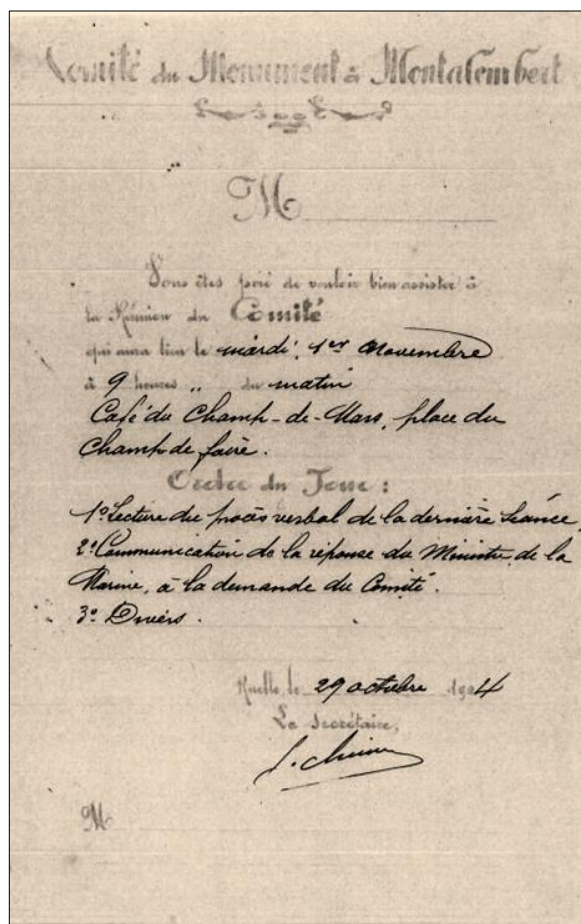 Comité du Monument à Montalembert
M
Vous êtes prié de vouloir bien assister à
la Réunion du Comité
qui aura lieu le mardi, 1er Novembre
à 9 heures „ du matin
Café du Champ-de-Mars, place du
Champ de foire.
Ordre du Jour :
1º Lecture du procès verbal de la dernière séance,
2º Communication de la réponse du Ministre de la
Marine, à la demande du Comité.
3º Divers.
Ruelle, le 29 octobre 1904
Le Secrétaire,
M